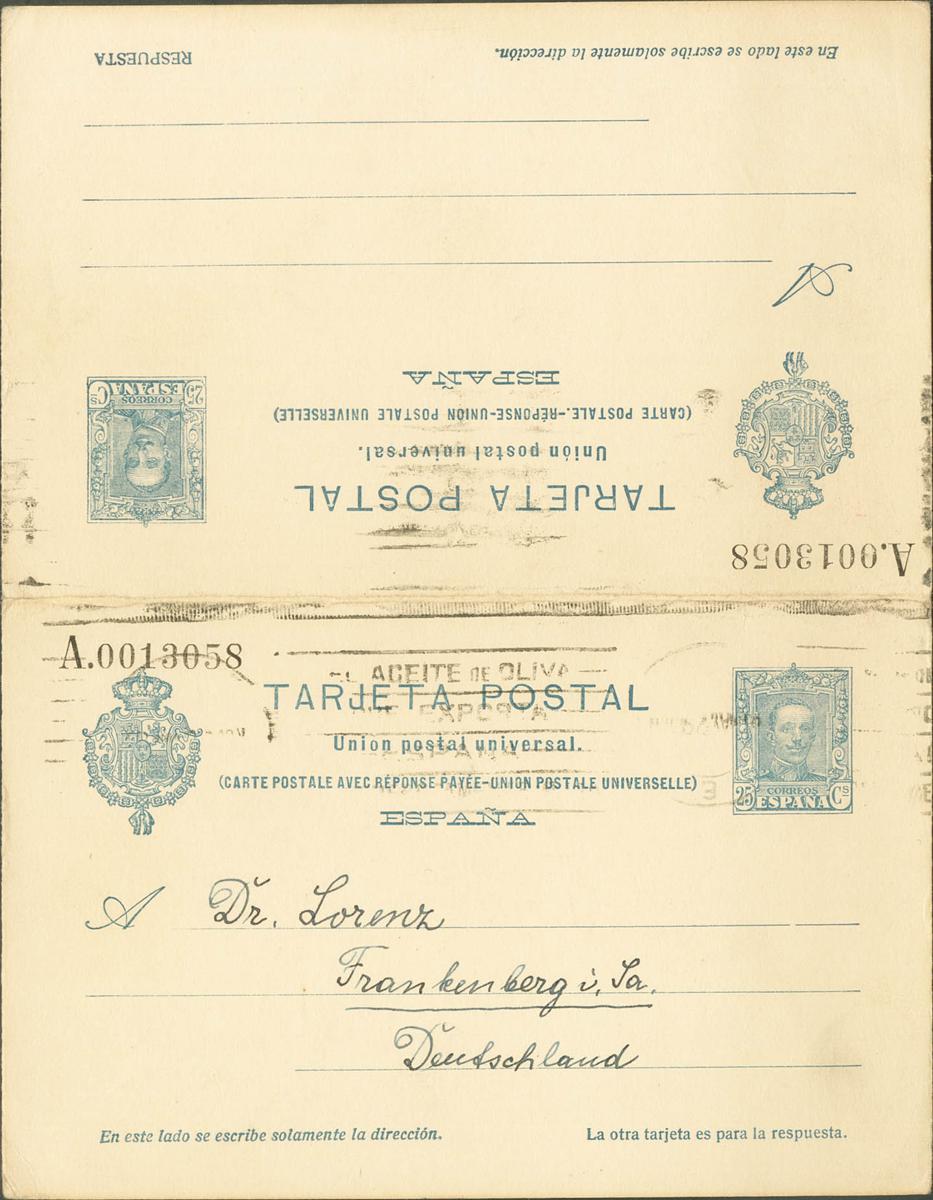 RESPUESTA
En este lado se escribe solamente la dirección.
A
ESPAÑA
(CARTE POSTALE.-RÉPONSE-UNIÓN POSTALE UNIVERSELLE)
Unión postal universal.
TARJETA POSTAL
CORREOS
ESPAÑA
25 Cs
A.0013058
A.0013058
ACEITE DE OLIVA
TARJETA POSTAL
EXPORTA
Union postal universal.
ESPAÑA
(CARTE POSTALE AVEC RÉPONSE PAYÉE-UNION POSTALE UNIVERSELLE)
CORREOS
25 ESPAÑA Cs
ESPAÑA
A Dr. Lorenz
Frankenberg i. Sa.
Deutschland
En este lado se escribe solamente la dirección. La otra tarjeta es para la respuesta.